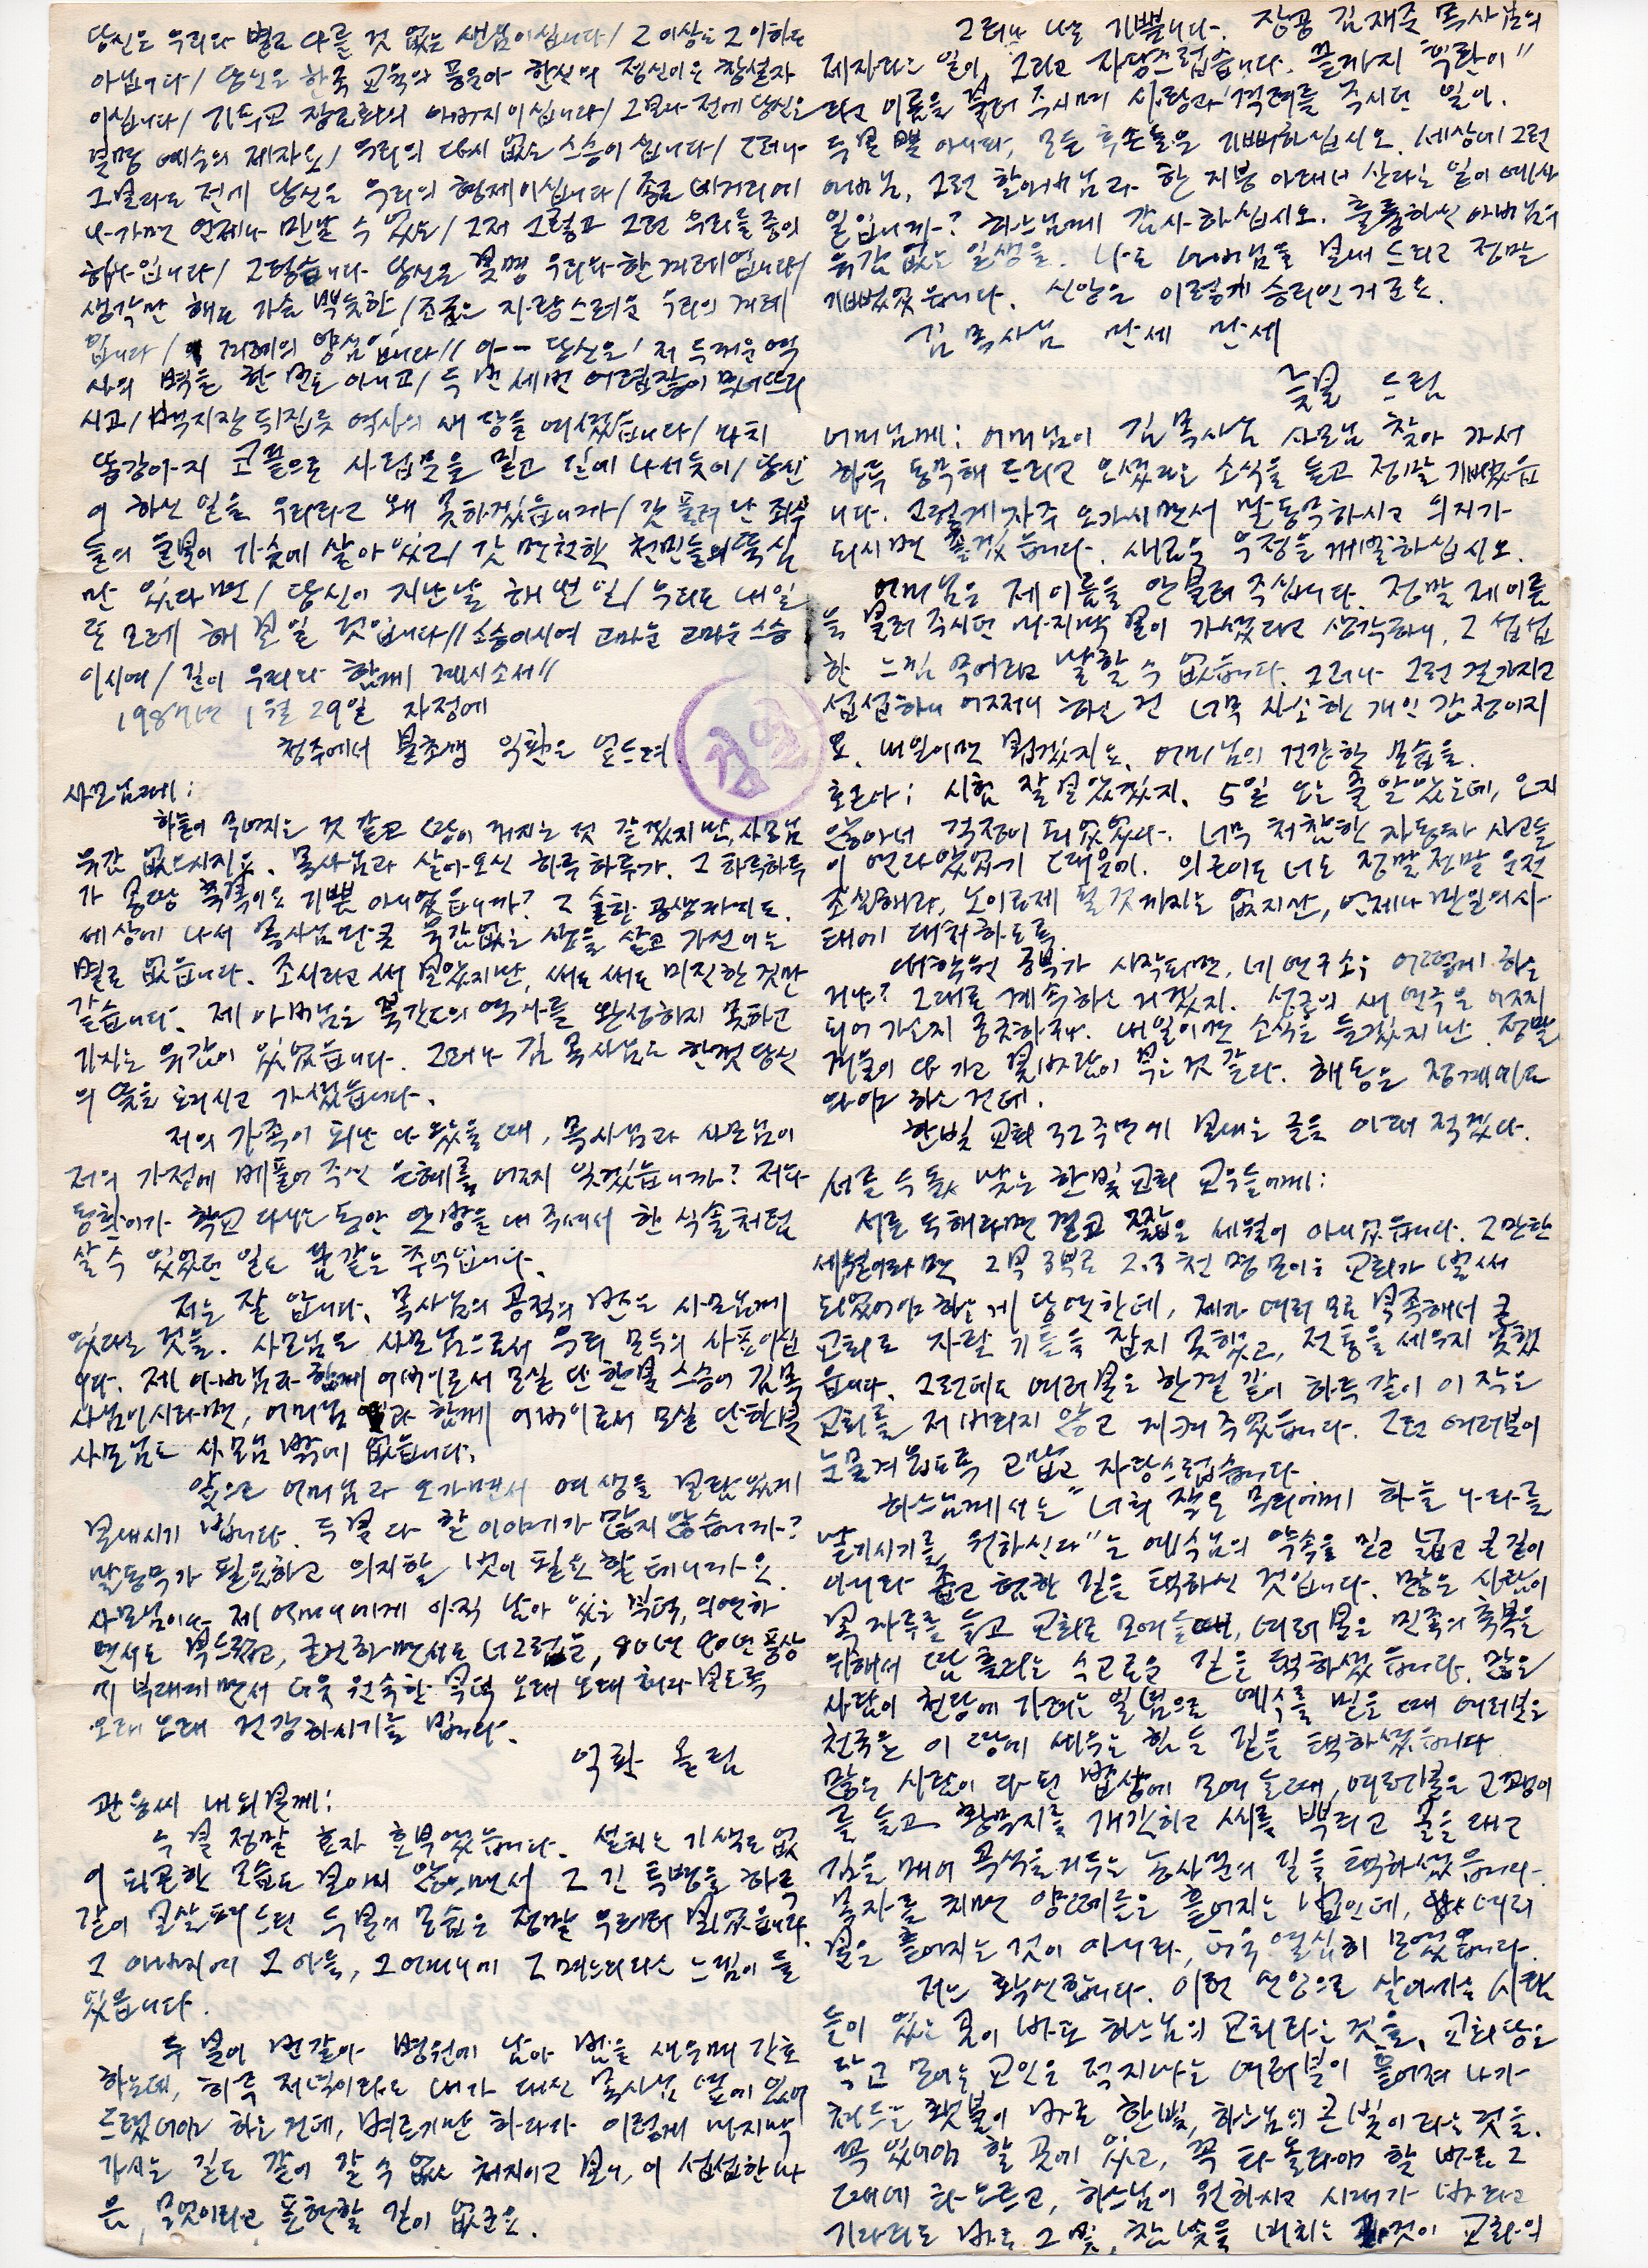 당신은 우리와 별로 다를 것 없는 생님이십니다/ 그 이상도 그 이하도
아닙니다/ 당신은 한국 교육의 풍운아 한신의 정신이오 창설자
이십니다/ 기독교 장로회의 아버지이십니다/ 그보다 전에 당신은
분명 예수의 제자요/ 우리의 다시 없는 스승이십니다/ 그러나
그보다도 전에 당신은 우리의 형제이십니다/ 종로 네거리에
나가면 언제나 만날 수 있는/ 그저 그렇고 그런 우리들 중의
하나입니다/ 그렇습니다 당신은 분명 우리와 한 겨레입니다/
생각만 해도 가슴 뿌듯한/ 조금은 자랑스러운 우리의 겨레
입니다/ 겨레의 양심입니다// 아— 당신은/ 저 두꺼운 역
사의 벽을 한 번도 아니고/ 두 번 세번 어렵잖이 무너뜨리
시고/ 백지장 뒤집듯 역사의 새 장을 여셨습니다/ 마치
똥강아지 코끝으로 사립문을 밀고 길에 나서듯이/ 당신
이 하신 일을 우리라고 왜 못하겠습니까/ 갓 풀려난 죄수
들의 눈물이 가슴에 살아 있고/ 갓 면천한 천민들의 뚝심
만 있다면/ 당신이 지난날 해낸 일/ 우리도 내일
또 모레 해 보일 것입니다// 스승이시여 고마운 고마운 스승
이시여/ 길이 우리와 함께 계시소서//
1987년 1월 29일 자정에
청주에서 불초생 익환은 엎드려
사모님께:
하늘이 무너지는 것 같고 땅이 꺼지는 것 같겠지만, 사모님
유감 없으시지요. 목사님과 살아오신 하루하루가. 그 하루하루
가 몽땅 축복이요 기쁨 아니었습니까? 그 숱한 고생까지도.
세상에 나서 목사님만큼 유감없는 삶을 살고 가신 이는
별로 없습니다. 조시라고 써 보았지만, 써도 써도 미진한 것만
같습니다. 제 아버님은 북간도의 역사를 완성하지 못하고
가시는 유감이 있었습니다. 그러나 김 목사님은 한껏 당신
의 뜻을 이루시고 가셨습니다.
저의 가족이 피난 나왔을 때, 목사님과 사모님이
저의 가정에 베풀어 주신 은혜를 어찌 잊겠습니까? 저와
동환이가 학교 다니는 동안 안방을 내 주셔서 한 식솔처럼
살 수 있었던 일도 꿈 같은 추억입니다.
저는 잘 압니다. 목사님의 공적의 반은 사모님께
있다는 것을. 사모님은 사모님으로서 우리 모두의 사표이십
니다. 제 아버님과 함께 어버이로서 모실 단 한 분 스승이 김 목
사님이시라면, 어머님과 함께 어버이로서 모실 단 한 분
사모님도 사모님 밖에 없습니다.
앞으로 어머님과 오가면서 여생을 보람있게
보내시기 빕니다. 두 분 다 할 이야기가 많지 않습니까?
말동무가 필요하고 의지할 벗이 필요할 테니까요.
사모님이나 제 어머니에게 아직 남아 있는 복덕, 의연하
면서도 부드럽고, 굳건하면서도 너그럽는, 80년 90년 풍상
에 부대끼면서 더욱 원숙한 복덕 오래 오래 허락 보도록
오래 오래 건강하시기를 빕니다.
익환 올림
관용씨 내외분께:
두 분 정말 효자 효부였습니다. 싫다는 기색도 없
이 피곤한 모습도 보이지 않으면서 그 긴 투병을 하루
같이 보살펴 드린 두 분의 모습은 정말 우러러 보였습니다.
그 아버지에 그 아들, 그 어머니에 그 며느리라는 느낌이 들
었습니다.
두 분이 번갈아 병원에 남아 밤을 새우며 간호
하는데, 하루 저녁이라도 내가 대신 목사님 옆에 있어
드렸어야 하는 건데, 벼르기만 하다가 이렇게 마지막
가시는 길도 같이 갈 수 없는 처지이고 보니, 이 섭섭한 마
음, 무엇이라고 표현할 길이 없군요.
그러나 나는 기쁩니다. 장공 김재준 목사님의
제자라는 일이 그리고 자랑스럽습니다. 끝까지 "익환이"
라고 이름을 불러 주시며 사랑과 격려를 주시던 일이.
두 분 뿐 아니라, 모든 후손들은 기뻐하십시오. 세상에 그런
아버님, 그런 할아버님과 한 지붕 아래서 산다는 일이 예사
일입니까? 하느님께 감사하십시오. 훌륭하신 아버님의
유감 없는 일생을. 나도 아버님을 보내 드리고 정말
기뻤었습니다. 신앙은 이렇게 승리인 거군요.
김 목사님 만세 만세
늦봄 드림
어머님께: 어머님이 김 목사님 사모님 찾아 가서
하루 동무해 드리고 오셨다는 소식을 듣고 정말 기뻤습
니다. 그렇게 자주 오가시면서 말동무하시고 의지가
되시면 좋겠습니다. 새로운 우정을 계발하십시오.
어머님은 제 이름을 안 불러 주십니다. 정말 제 이름
을 불러 주시던 마지막 분이 가셨다고 생각하니, 그 섭섭
한 느낌 무어라고 말할 수 없습니다. 그러나 그런 걸 가지고
섭섭하니 어쩌니 하는 건 너무 사소한 개인 감정이지
요. 내일이면 뵙겠지요. 어머님의 건강한 모습을.
호근아: 시험 잘 보았겠지. 5일 오는 줄 알았는데, 오지
않아서 걱정이 되었었다. 너무 처참한 자동차 사고들
이 연달았었기 때문에. 의근이도 너도 정말 정말 운전
조심해라, 노이로제 될 것까지는 없지만, 언제나 만일의 사
태에 대처하도록.
대학원 공부가 시작되면, 네 연구소는 어떻게 하는
거냐? 그대로 계속하는 거겠지. 성근의 새 연극은 어찌
되어 가는지 궁금하구나. 내일이면 소식을 듣겠지만. 정말
겨울이 다 가고 봄바람이 부는 것 같다. 해동은 정계에도
와야 하는 건데.
한빛 교회 32주년에 보내는 글은 아래 적겠다.
서른 두 돐 맞는 한빛 교회 교우들에게:
서른 두 해라면 결코 짧은 세월이 아니었습니다. 그만한
세월이라면 2부 3부로 2·3천 명 모이는 교회가 벌써
되었어야 하는 게 당연한데, 제가 여러 모로 부족해서 큰
교회로 자랄 기틀을 잡지 못했고, 전통을 세우지 못했
습니다. 그런데도 여러분은 한결 같이 하루 같이 이 작은
교회를 저버리지 않고 지켜 주었습니다. 그런 여러분이
눈물겨웁도록 고맙고 자랑스럽습니다.
하느님께서는 "너희 작은 무리에게 하늘 나라를
맡기시기를 원하신다"는 예수님의 약속을 믿고 넓고 큰 길이
아니라 좁고 험한 길을 택하신 것입니다. 많은 사람이
복 자루를 들고 교회로 모여들 때, 여러분은 민족의 축복을
위해서 땀 흘리는 수고로운 길을 택하셨습니다. 많은
사람이 천당에 가려는 일념으로 예수를 믿을 때 여러분은
천국을 이 땅에 세우는 힘든 길을 택하셨습니다.
많은 사람이 다 된 밥상에 모여들 때, 여러분은 고괭이
를 들고 황무지를 개간하고 씨를 뿌리고 물을 대고
김을 매어 곡식을 거두는 농사꾼의 길을 택하셨습니다.
목자를 치면 양떼들은 흩어지는 법인데, 여러
분은 흩어지는 것이 아니라, 더욱 열심히 모였습니다.
저는 확신합니다. 이런 신앙으로 살아가는 사람
들이 있는 곳이 바로 하느님의 교회라는 것을. 교회당은
작고 모이는 교인은 적지마는 여러분이 흩어져 나가
쳐드는 횃불이 바로 한빛, 하느님의 큰 빛이라는 것을.
꼭 있어야 할 곳에 있고, 꼭 타올라야 할 바로 그
때에 타오르고, 하느님이 원하시고 시대가 바라고
기다리는 바로 그 빛, 참 빛을 비치는 것이 교회의